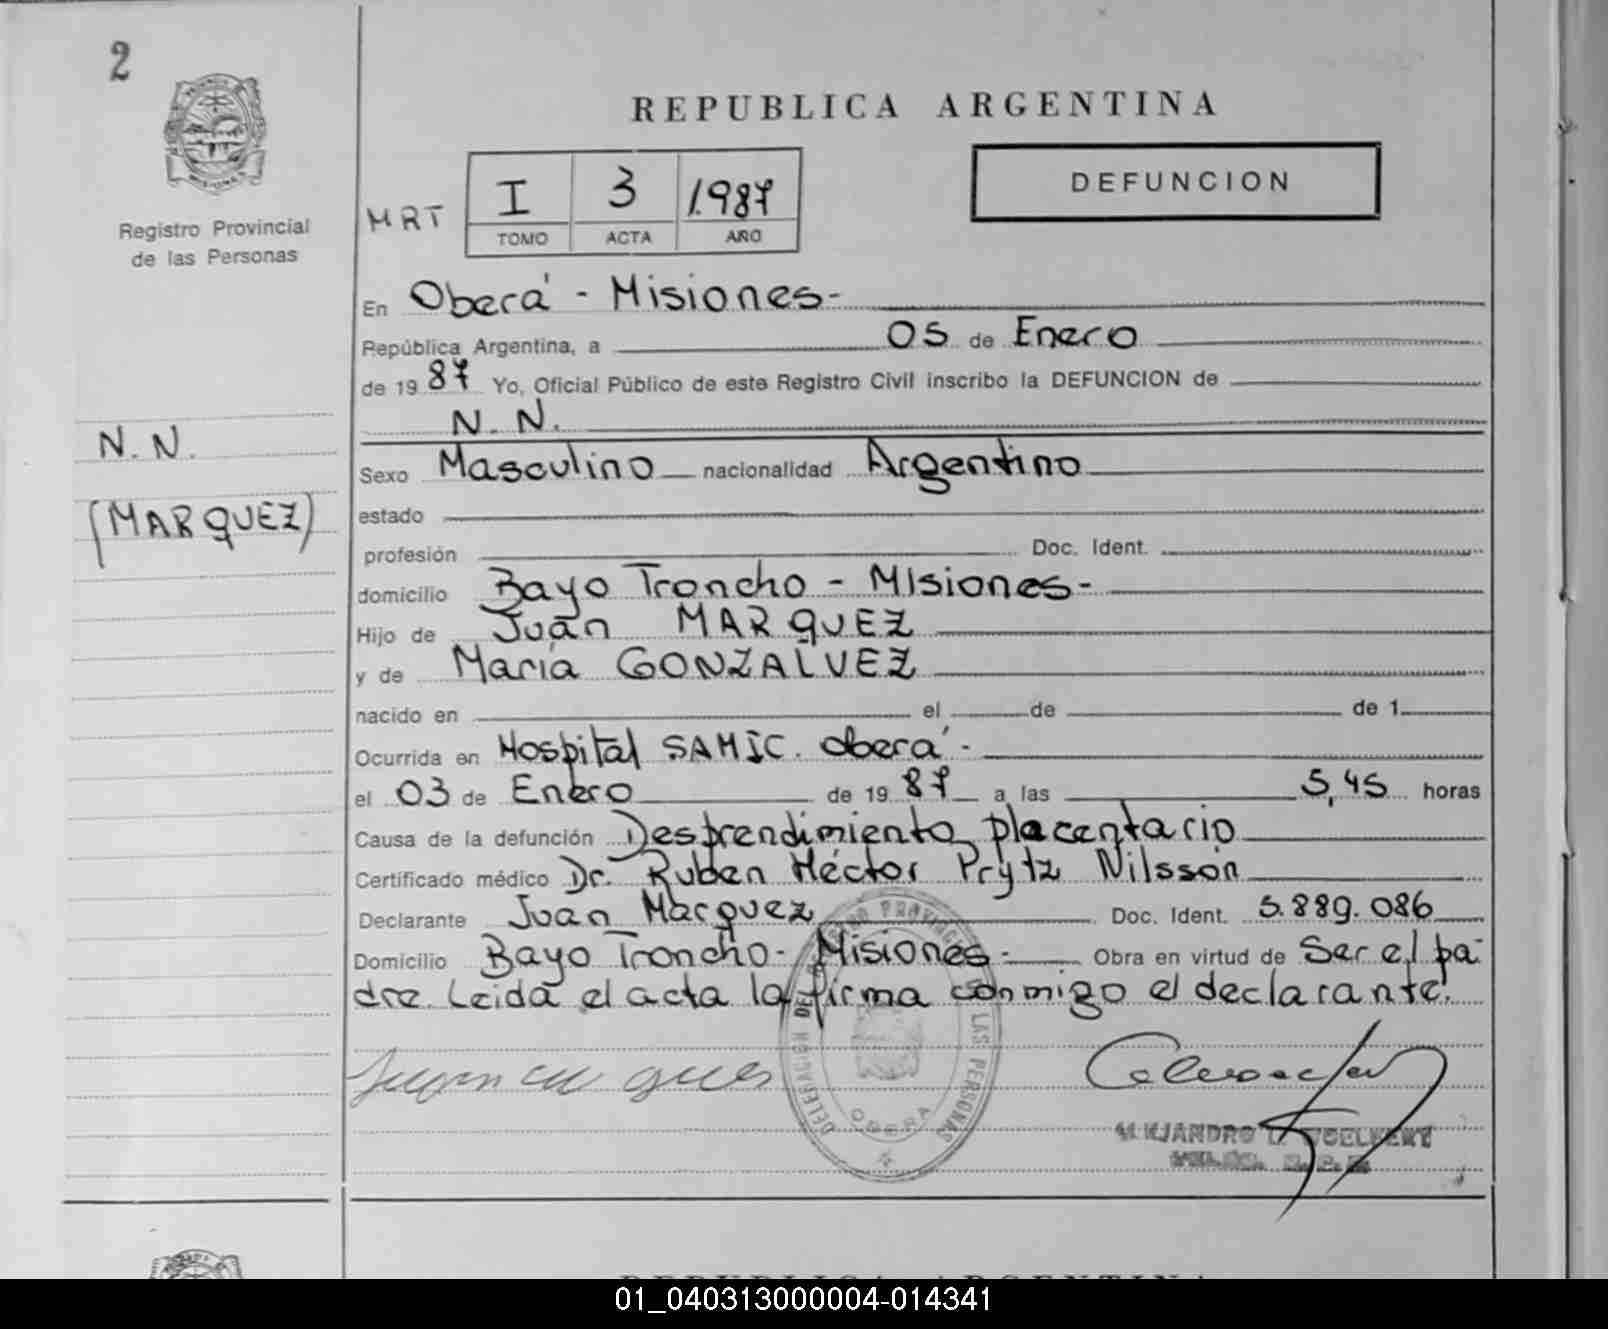 2
REPUBLICA ARGENTINA
Registro Provincial
de las Personas
MRT
I 3 1.987
TOMO ACTA AÑO
DEFUNCION
En Oberá - Misiones-
República Argentina, a 05 de Enero
de 1987 Yo, Oficial Público de este Registro Civil inscribo la DEFUNCION de
N. N.
N. N.
(MARQUEZ)
Sexo Masculino nacionalidad Argentino
estado
profesión Doc. Ident.
domicilio Bayo Troncho - Misiones-
Hijo de Juan MARQUEZ
y de María GONZALVEZ
nacido en el de de 1
Ocurrida en Hospital SAMIC. Oberá-
el 03 de Enero de 1987 a las 5,45 horas
Causa de la defunción Desprendimiento placentario
Certificado médico Dr. Ruben Héctor Prytz Nilsson
Declarante Juan Marquez Doc. Ident. 5.889.086
Domicilio Bayo Troncho- Misiones- Obra en virtud de Ser el pa-
dre. Leida el acta la firma conmigo el declarante.
DELEGACIÓN DEL REGISTRO PROVINCIAL DE LAS PERSONAS
OBERA
ALEJANDRO
REPUBLICA ARGENTINA
01_040313000004-014341